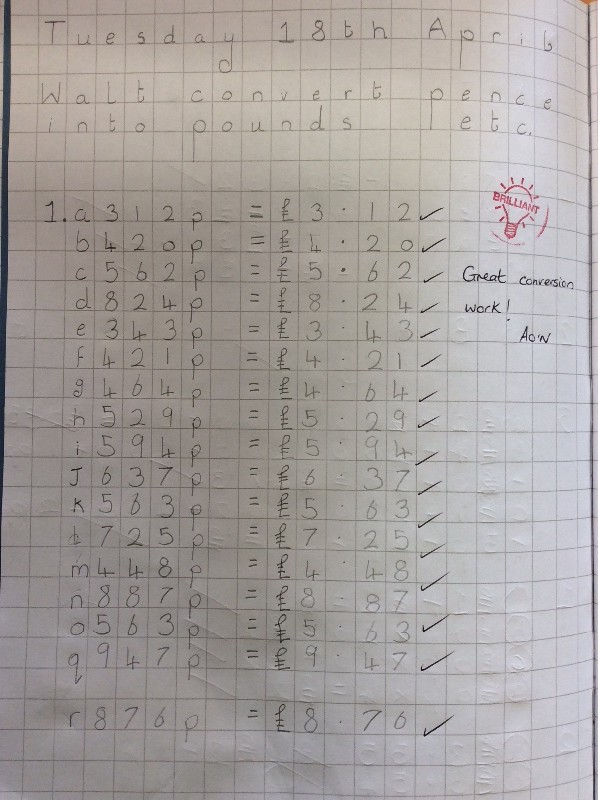 Tuesday 18th April
Walt convert pence
into pounds etc.
BRILLIANT
1. a 312p = £3.12 ✓
b 420p = £4.20 ✓
c 562p = £5.62 ✓ Great conversion
d 824p = £8.24 ✓ work!
e 343p = £3.43 ✓ AoN
f 421p = £4.21 ✓
g 464p = £4.64 ✓
h 529p = £5.29 ✓
i 594p = £5.94 ✓
J 637p = £6.37 ✓
K 563p = £5.63 ✓
l 725p = £7.25 ✓
m 448p = £4.48 ✓
n 887p = £8.87
o 563p = £5.63 ✓
q 947p = £9.47 ✓
r 876p = £8.76 ✓